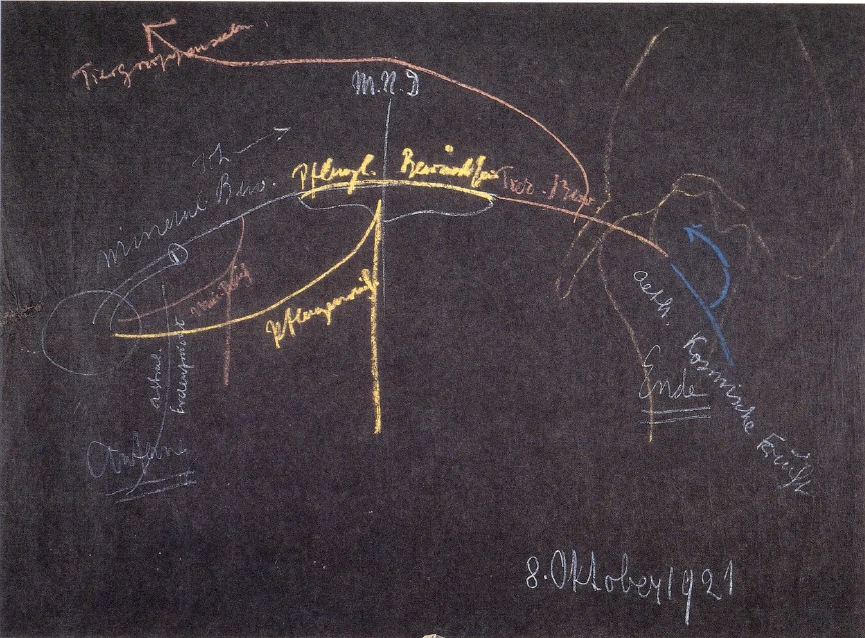 Tiergruppenseelen
M.N.D
Ich
mineral. Bew.
Pflanzl. Bewußtsein
Tier-Bew.
astral.
Anfang
Ende
aeth. Kosmische Kräfte
8. Oktober 1921